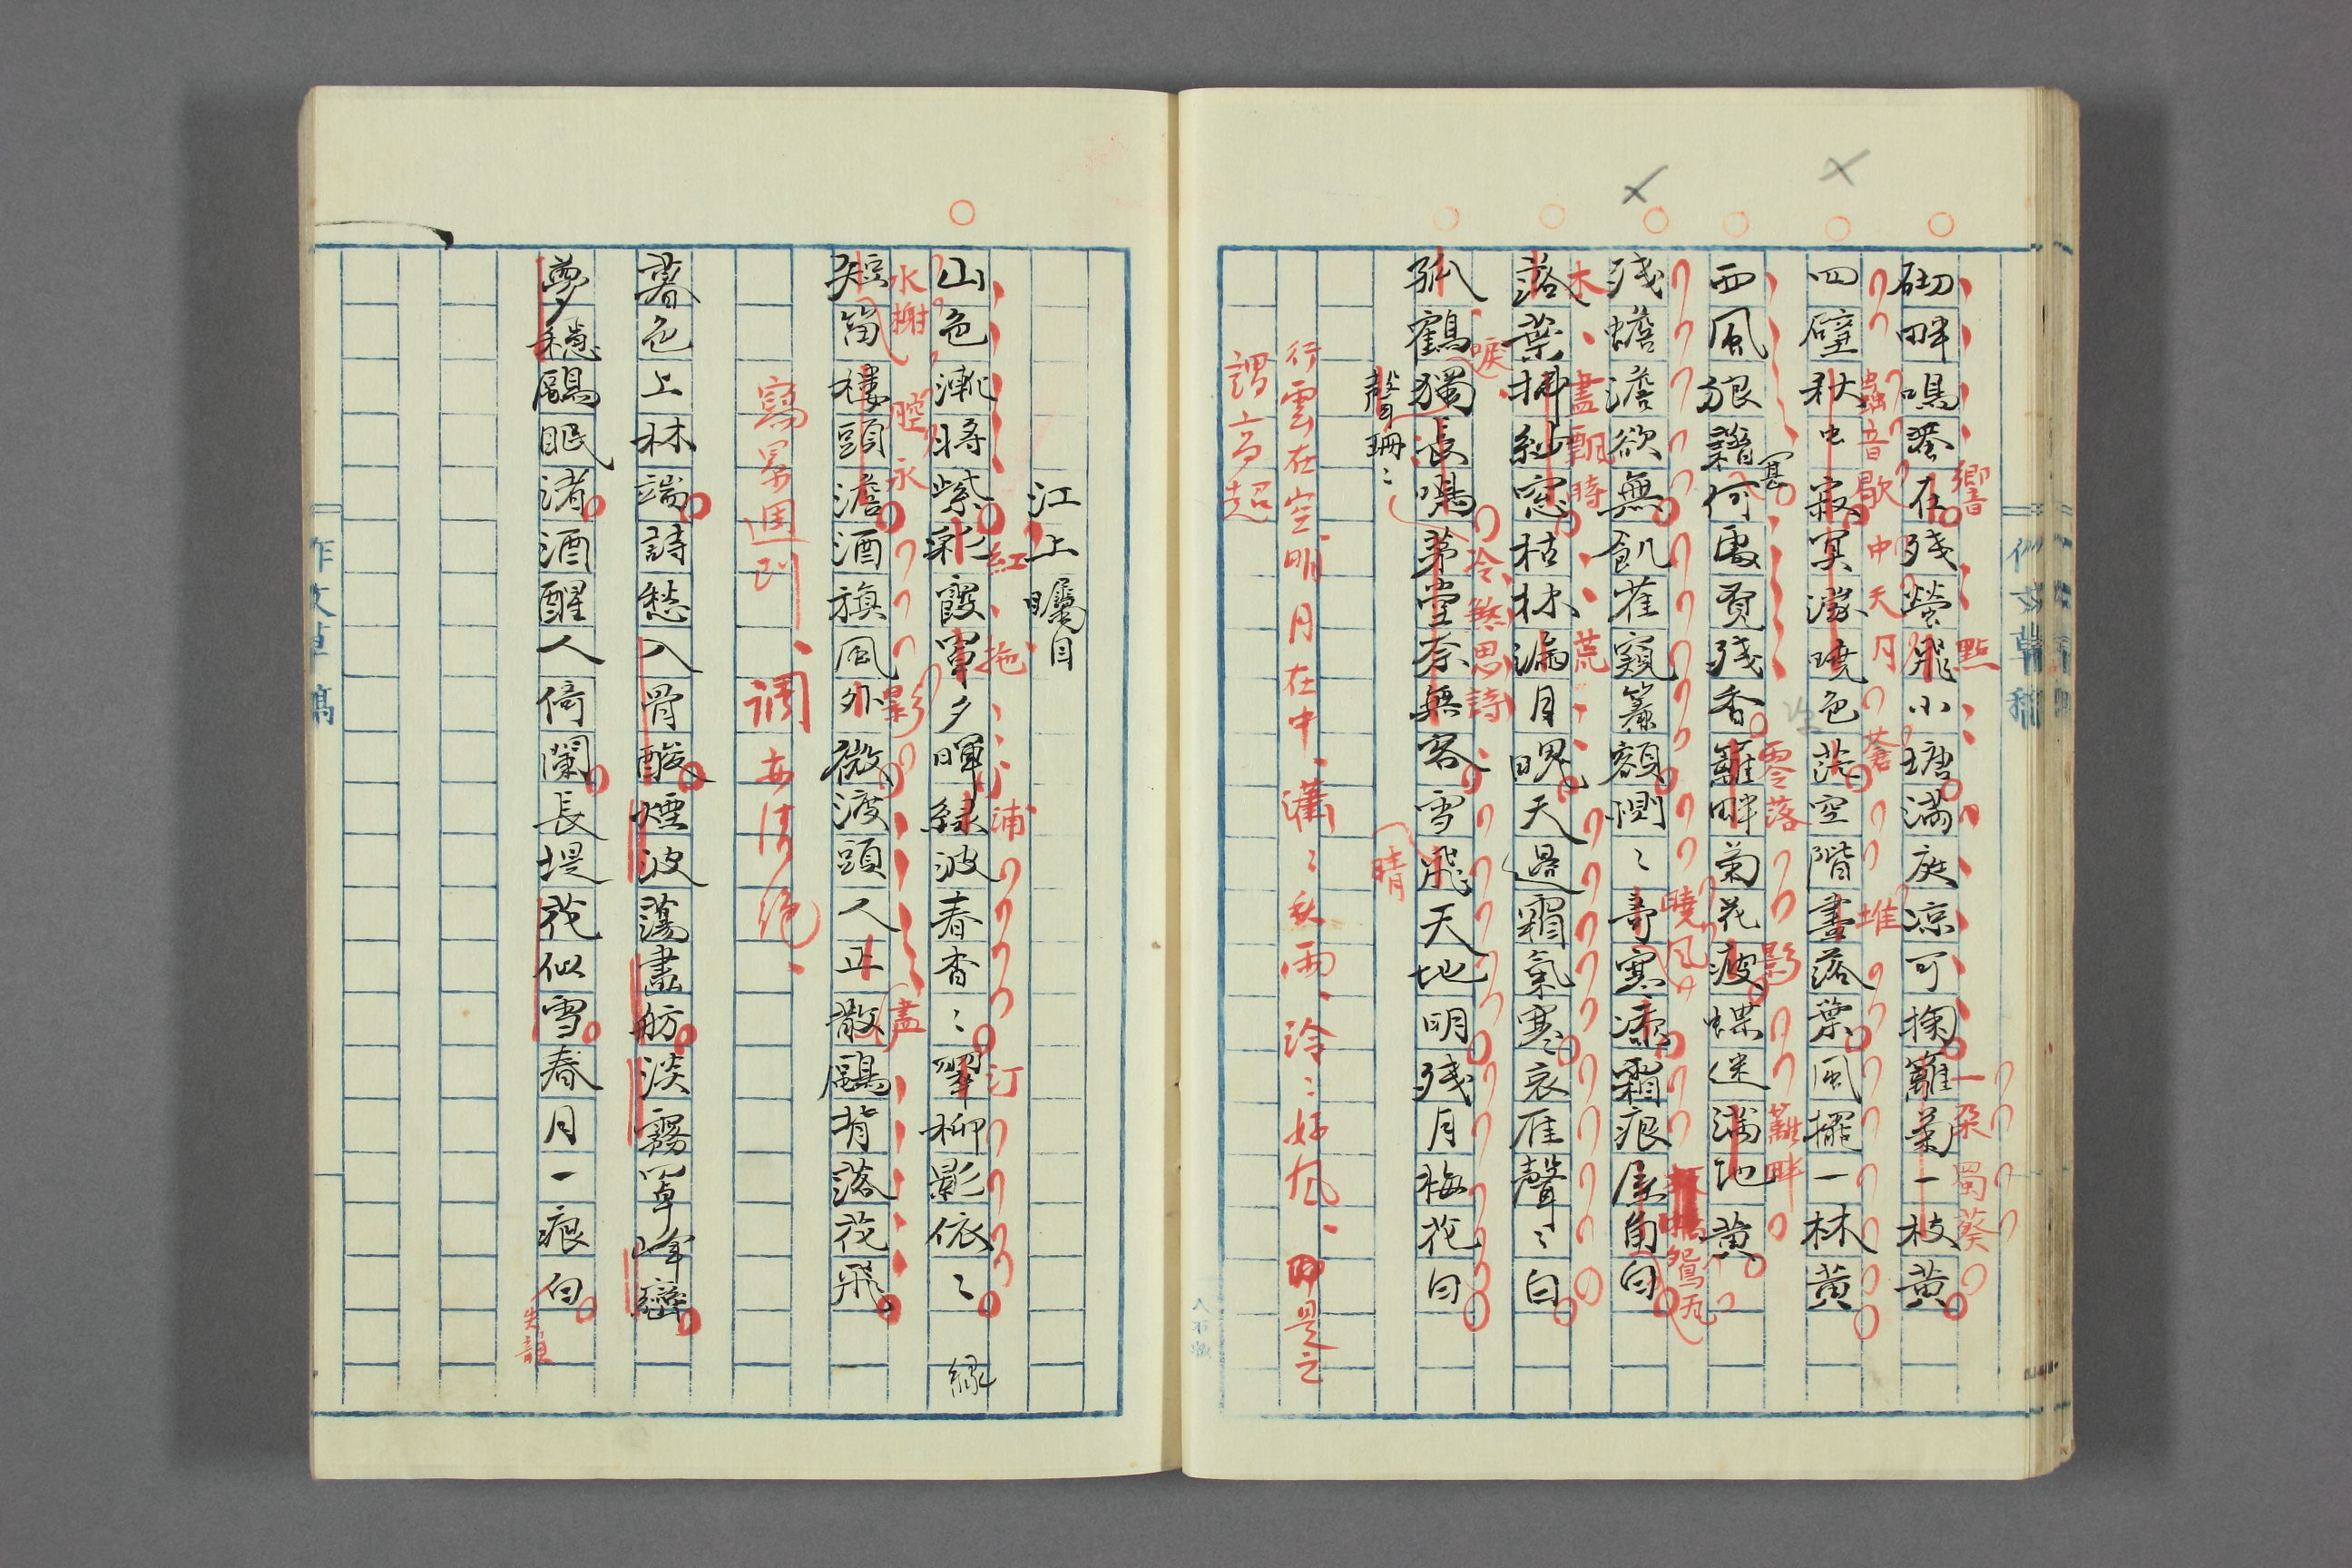 砌畔鳴蛩在殘螢飛小塘滿庭凉可掬籬菊一枝黃
響 點 一朶蜀葵
四壁秋虫寂冥濛曉色茫空階盡落葉風擺一林黃
蟲音歇中天月 蒼 堆
西風狼藉何處覓殘香籬畔菊花瘦蝶迷滿地黃
零落 影 籬畔
殘蟾澹欲無飢雀窺簷額惻〻奇寒凄霜痕屋角白
曉風 鴛瓦
落葉掃紗窓枯林漏月魄天過霜氣寒哀雁聲〻白
木 盡翻時 荒
孤鶴獨長鳴茅堂奈無客雪飛天地明殘月梅花白
唳 冷 思詩 晴
聲珊〻
行雲在空明月在中、瀟〻秋雨、泠〻好風、即是之
謂高超
江上矚目
山色漸將紫彩霞罩夕暉綠波春杳〻翠柳影依〻
紅 拖 浦 汀
綠
短笛樓頭澹酒旗風外微渡頭人正散鷗背落花飛
水榭 腔永 影 盡
寫景逼到、調亦清絕、
暮色上林端詩愁入骨酸煙波蕩畫舫淡霧罩峰巒
夢穩鷗眠渚酒醒人倚闌長堤花似雪春月一痕白
失韻
作文草稿